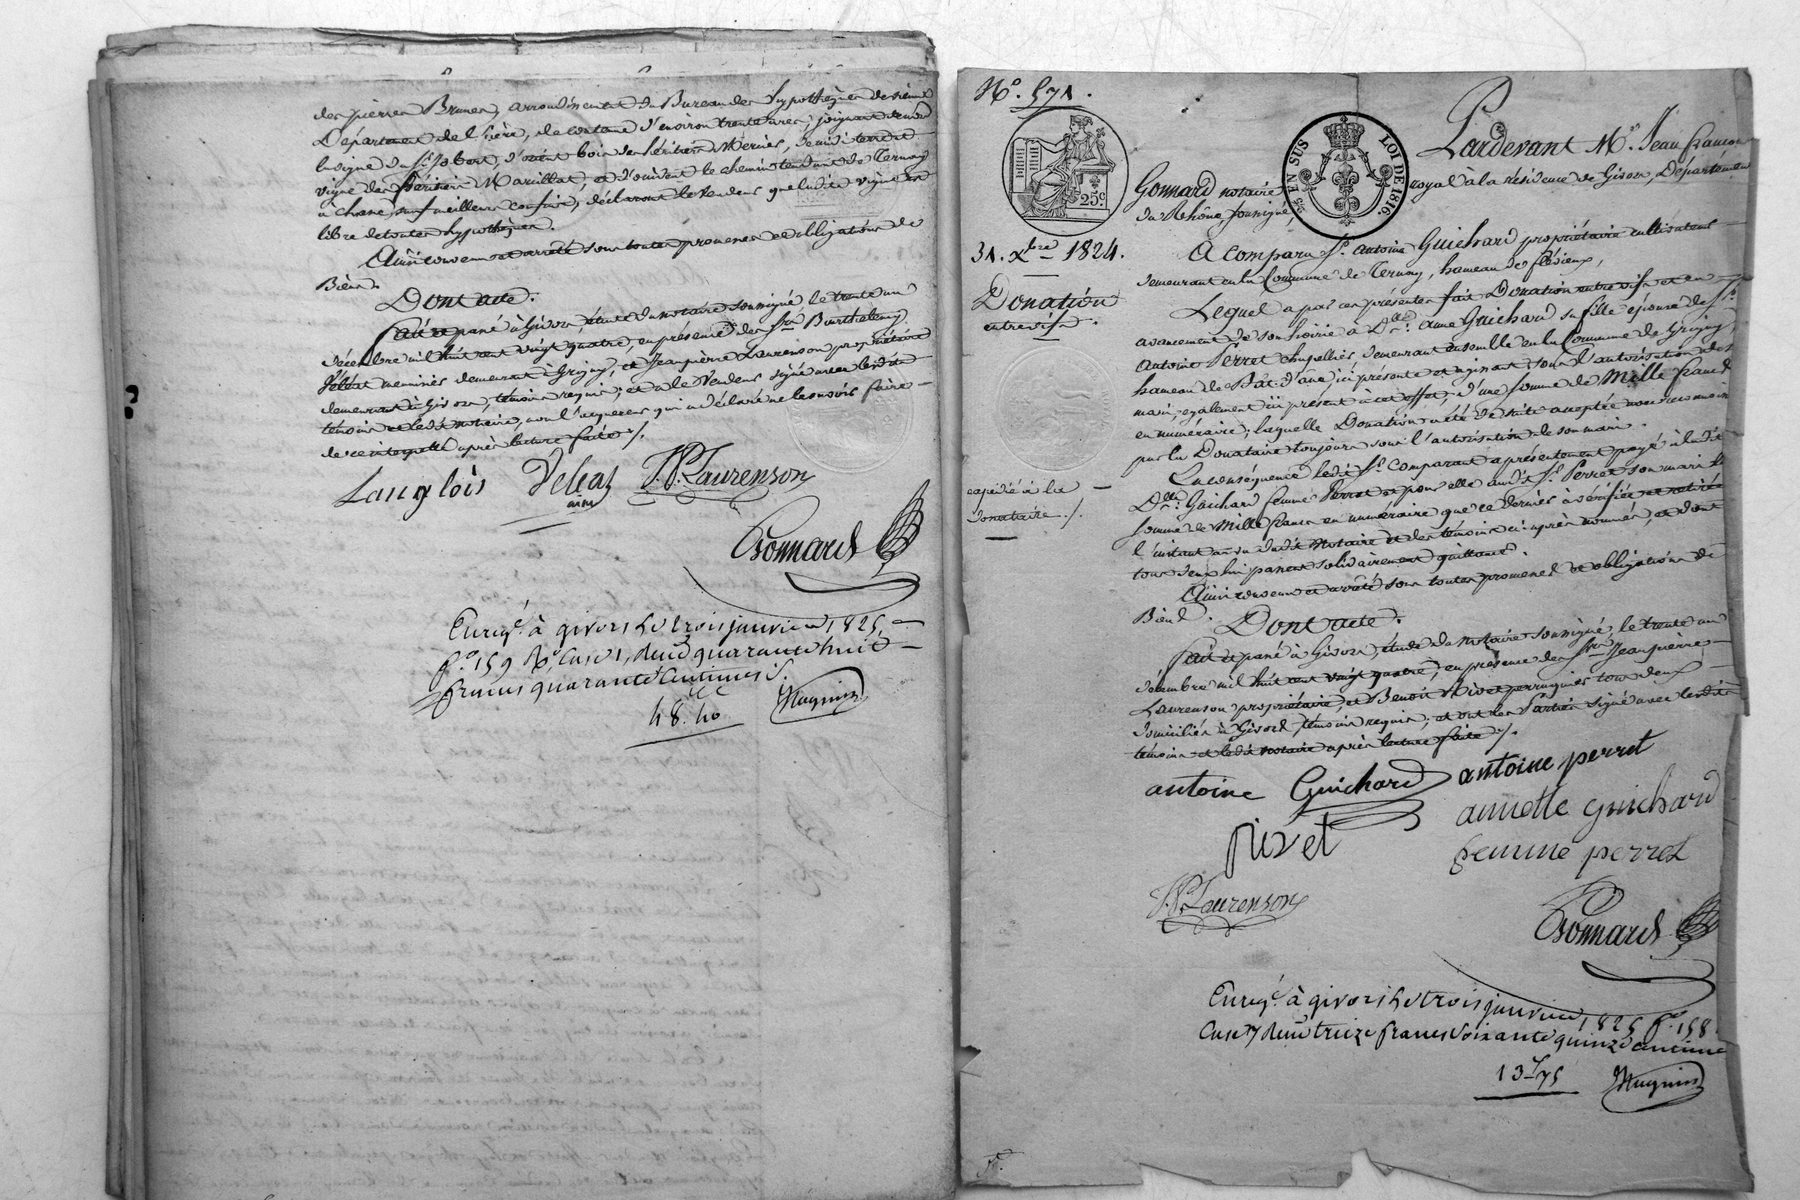 des pierres Brunes, arrondissement du Bureau des hypothèques de vienne
Département de l'isère, de contenue d'environ trente ares, joignant de
la vigne du Sr. Jobert, d'orient bois des héritiers Mernès, de midi terre et
vigne des héritiers Marillat, et d'occident le chemin tendant de Ternay
à Chane, sauf meilleurs confins, déclarant le vendeur que ladite vigne est
libre de toutes hypothèques.
Ainsi convenu et arrêté sous toutes promesses et obligations de
Biens.
Dont acte.
fait et passé à Givors, étude du notaire soussigné le trente un
décembre mil huit cent vingt quatre, en présence des Srs. Barthelemy
menuisier demeurant à Grigny, et Jeanpierre Laurenson propriétaire
demeurant à Givors, témoins requis; et a le vendeur signé avec lesdits
témoins et ledit notaire, non l'acquéreur qui a déclaré ne le savoir faire
de ce interpellé après lecture faite ./.
Langlois Deleaz J.P. Laurenson
ainé
Gonnard
Enregé. à givors le trois janvier 1825,
fo. 159 Ro. Case 1, reçu quarante huit
francs quarante centimes.
48.40
Magnin
No. 571.
Pardevant Me. Jean francois
25c
EN SUS LOI DE 1816
Gonnard notaire royal à la résidence de Givors, Département
du Rhône, soussigné,
31. Xbre 1824.
A comparu Sr. antoine Guichard propriétaire cultivateur
demeurant en la Commune de Ternay, hameau de flévieux,
Donation
entrevifs.
Lequel a par ces présentes fait Donation entre vifs et en
avancement de son hoirie à Dlle. anne Guichard sa fille épouse de Sr.
antoine Perret chapellier, demeurant ensemble en la Commune de Grigny,
hameau de Bât-d'âne, ici présente et agissant sous l'autorisation de
mari, également ici présent à cet effet, d'une somme de Mille francs
en numéraire, laquelle Donation a été de suite acceptée
par la Donataire toujours sous l'autorisation de son mari.
En conséquence ledit Sr. comparant a présentement payé à ladite
Dlle. Guichard femme Perret et pour elle audit Sr. Perret son mari
expédié à la
donataire ./.
somme de Mille francs en numéraire que ce dernier a vérifiée et retirée
l'instant au vu dudit Notaire et des témoins ci-après nommés, et dont
tous deux lui passent solidairement quittance.
Ainsi convenu et arrêté sous toutes promesses et obligations de
Biens.
Dont acte.
fait et passé à Givors, étude du notaire soussigné, le trente un
décembre mil huit cent vingt quatre, en présence des Srs. Jeanpierre
Laurenson propriétaire, et Benoit Rivet perruquier tous deux
domiciliés à Givors, témoins requis; et ont les Parties signé avec lesdits
témoins et ledit notaire après lecture faite ./.
antoine Guichard antoine perret
annette guichard
rivet
femme perret
J.P. Laurenson
Gonnard
Enregé. à givors le trois janvier 1825 fo. 158
Case 7 reçu treize francs soixante quinze centimes
13f75
Magnin